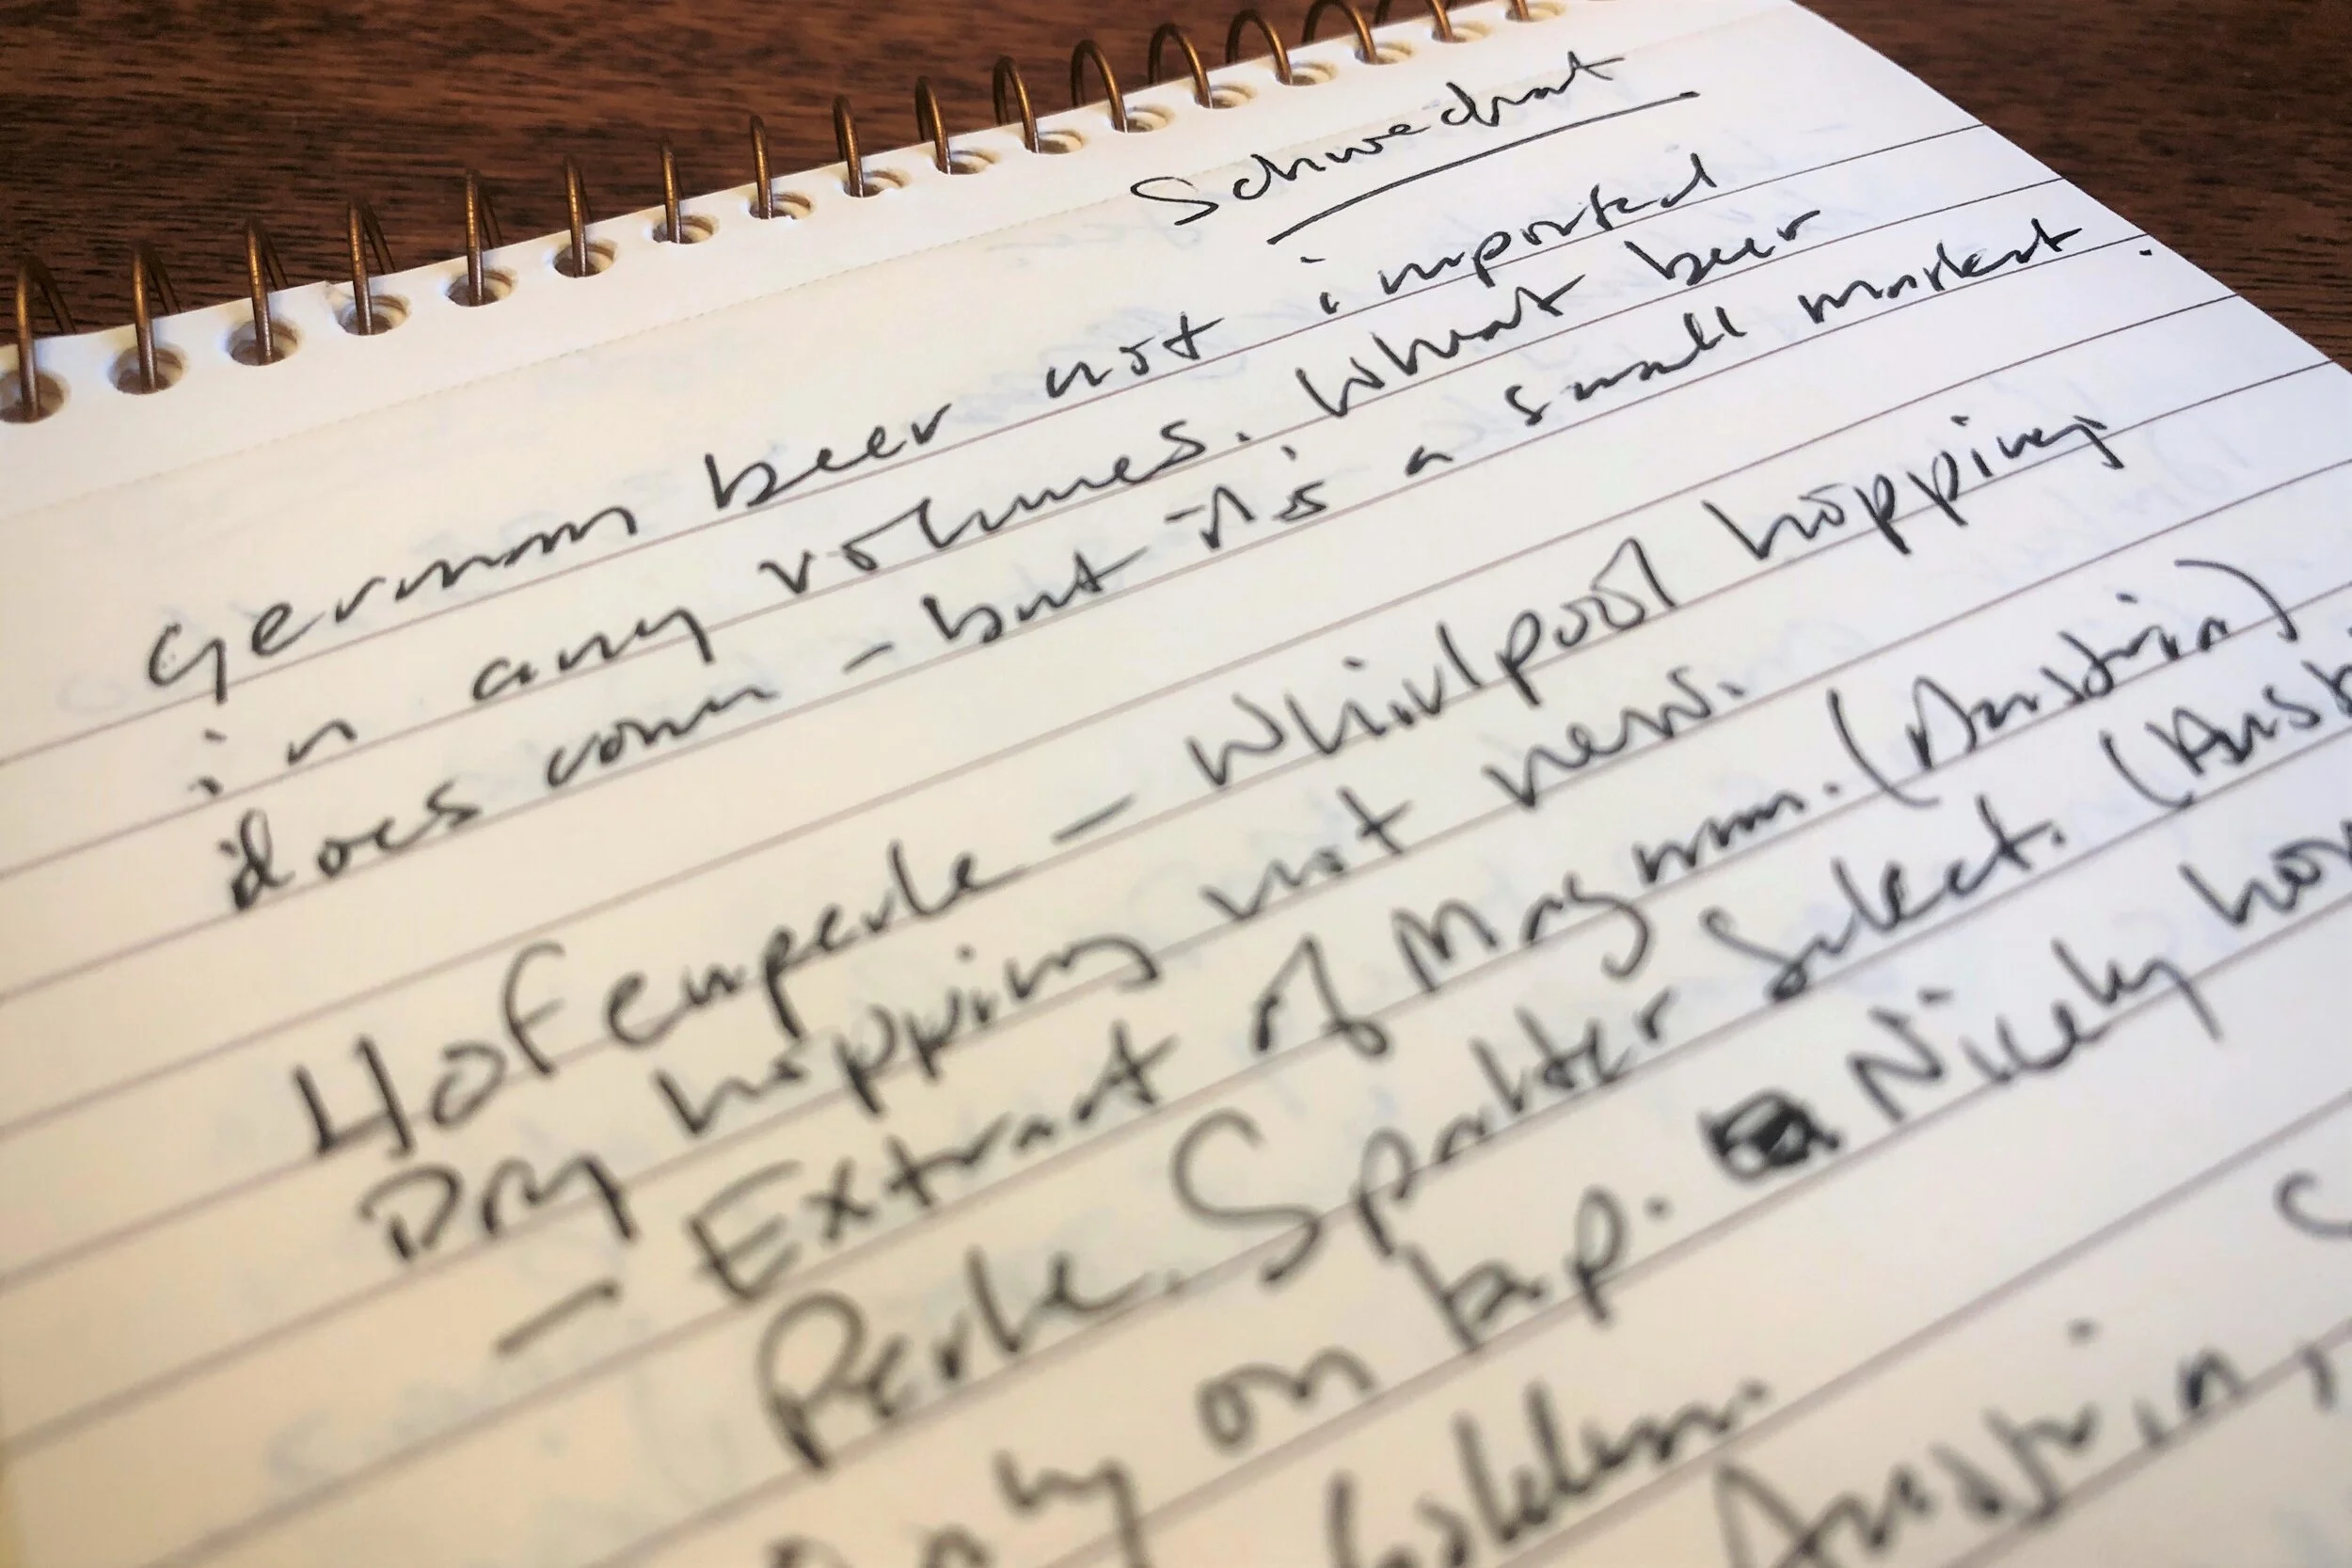 Schwechat
German beer not imported
in any volumes. Wheat beer
does come - but it is a small market.
Hofenperle - Whirlpool hopping
Dry hopping not new.
- Extract of Magnum. (Austria)
Perle. Spalter Select. (Aust
on tap. Nicely hop
Golden.
Austria,